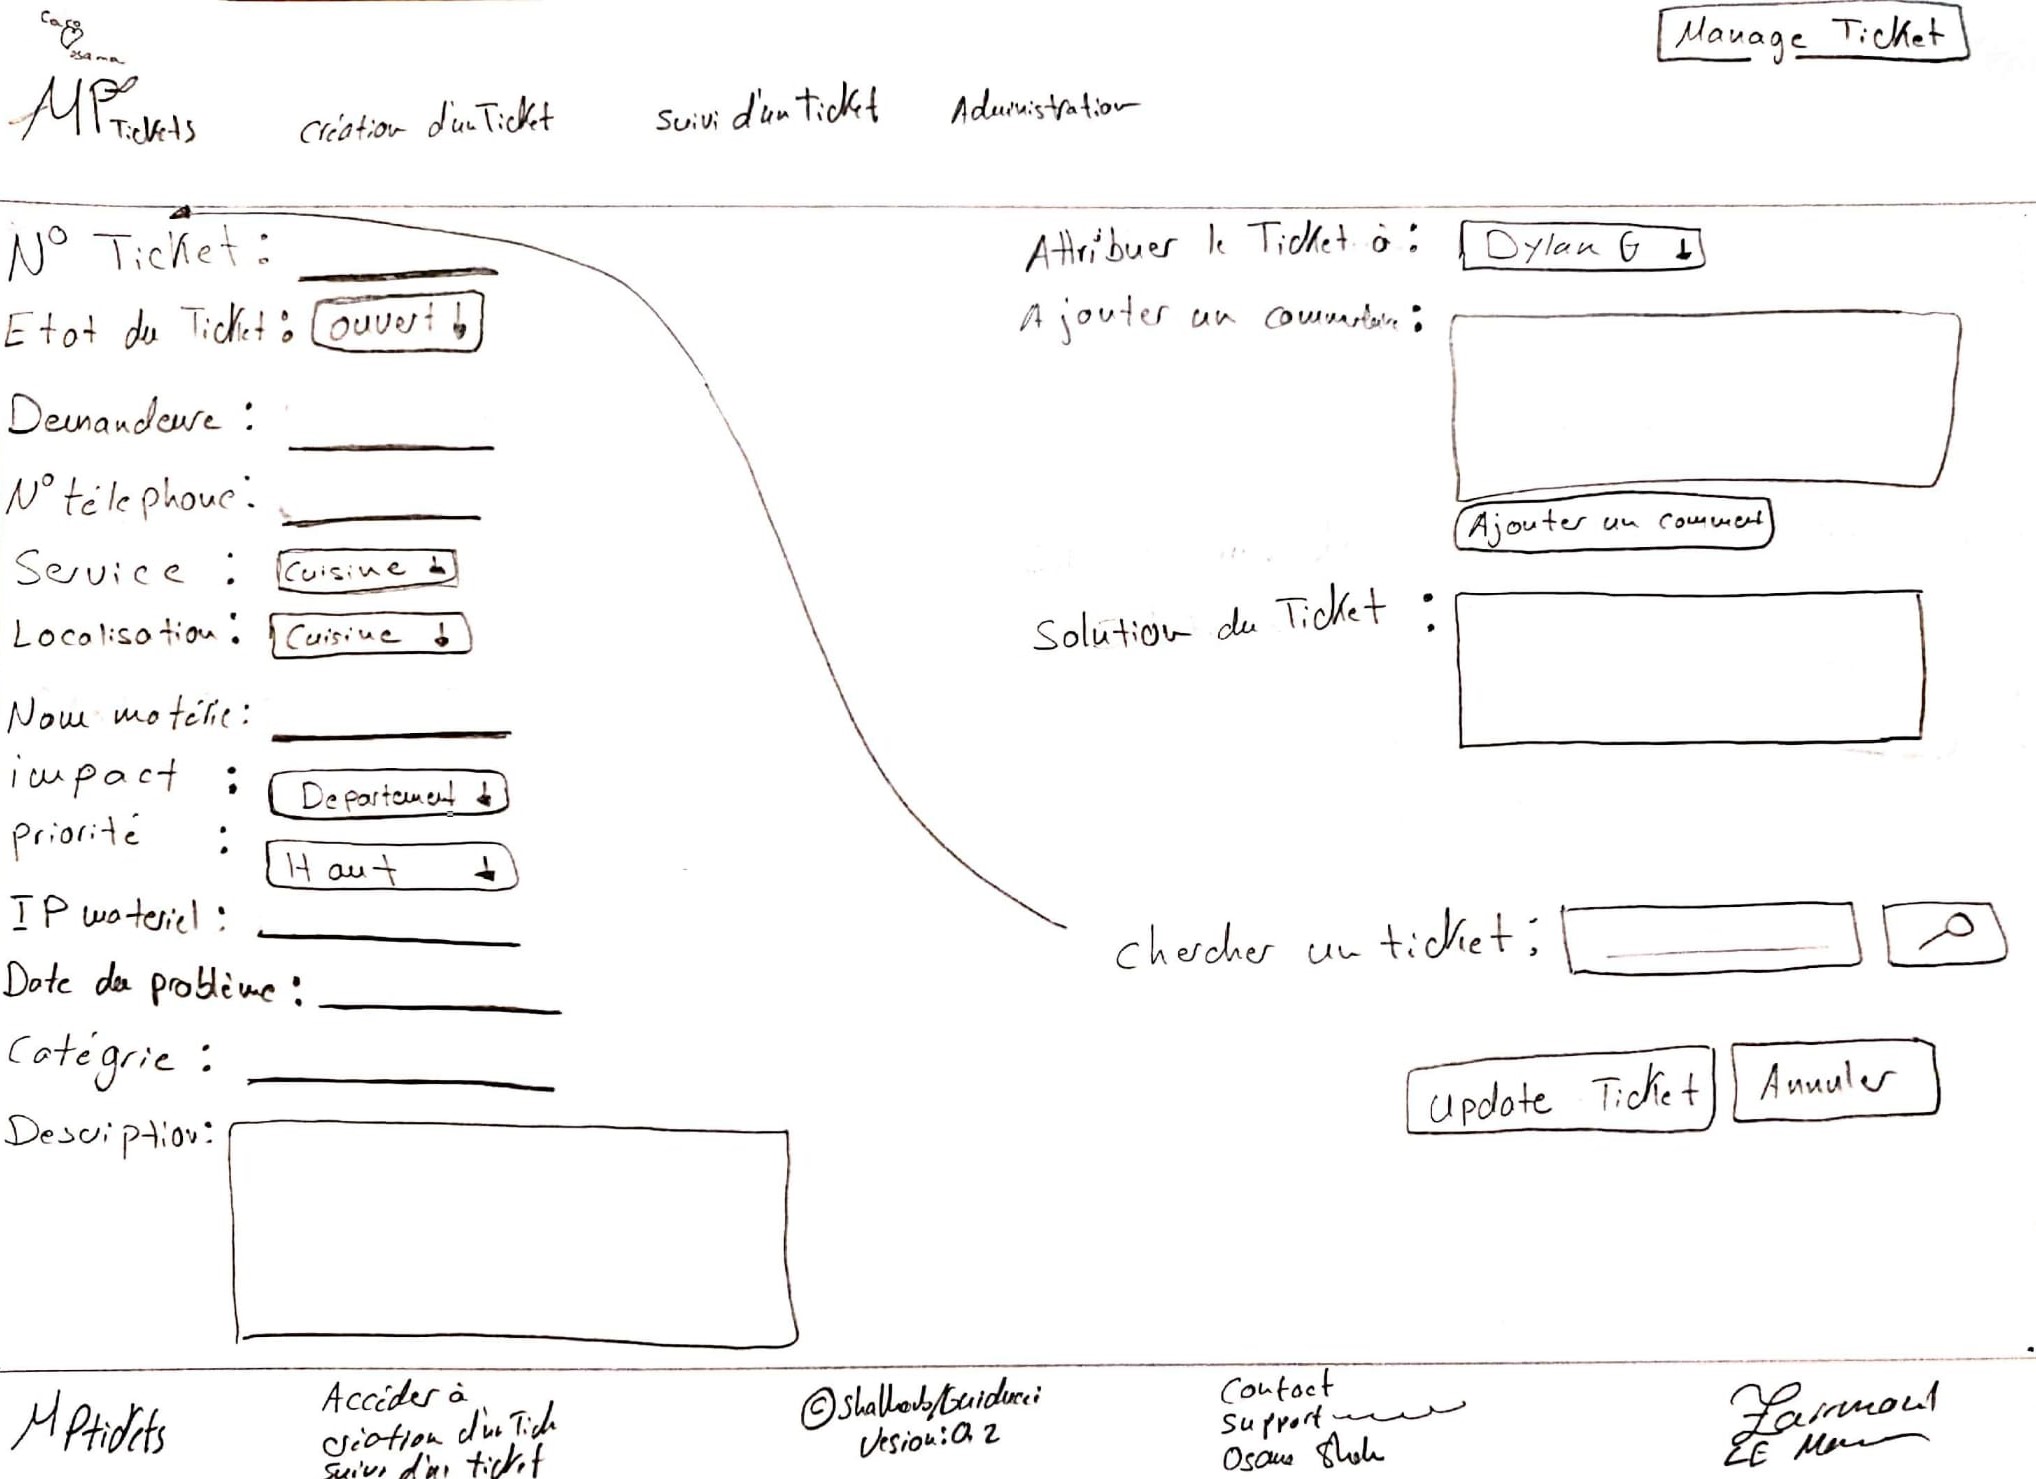 Caro
Osama
Manage Ticket
MP Tickets
Création d'un Ticket
Suivi d'un Ticket
Administration
N° Ticket :
Etat du Ticket : ouvert
Demandeure :
N° téléphone :
Service : Cuisine
Localisation : Cuisine
Nom matérie :
impact : Departement
priorité : Haut
IP materiel :
Date du problème :
Catégrie :
Description :
Attribuer le Ticket à : Dylan G
Ajouter un commentaire :
Ajouter un comment
Solution du Ticket :
chercher un ticket :
update Ticket
Annuler
MPtickets
Accéder à
création d'un Tick
suivi d'un ticket
© Shalhoub/Guiducci
Version: 0.2
Contact
support
Fairmont
LE